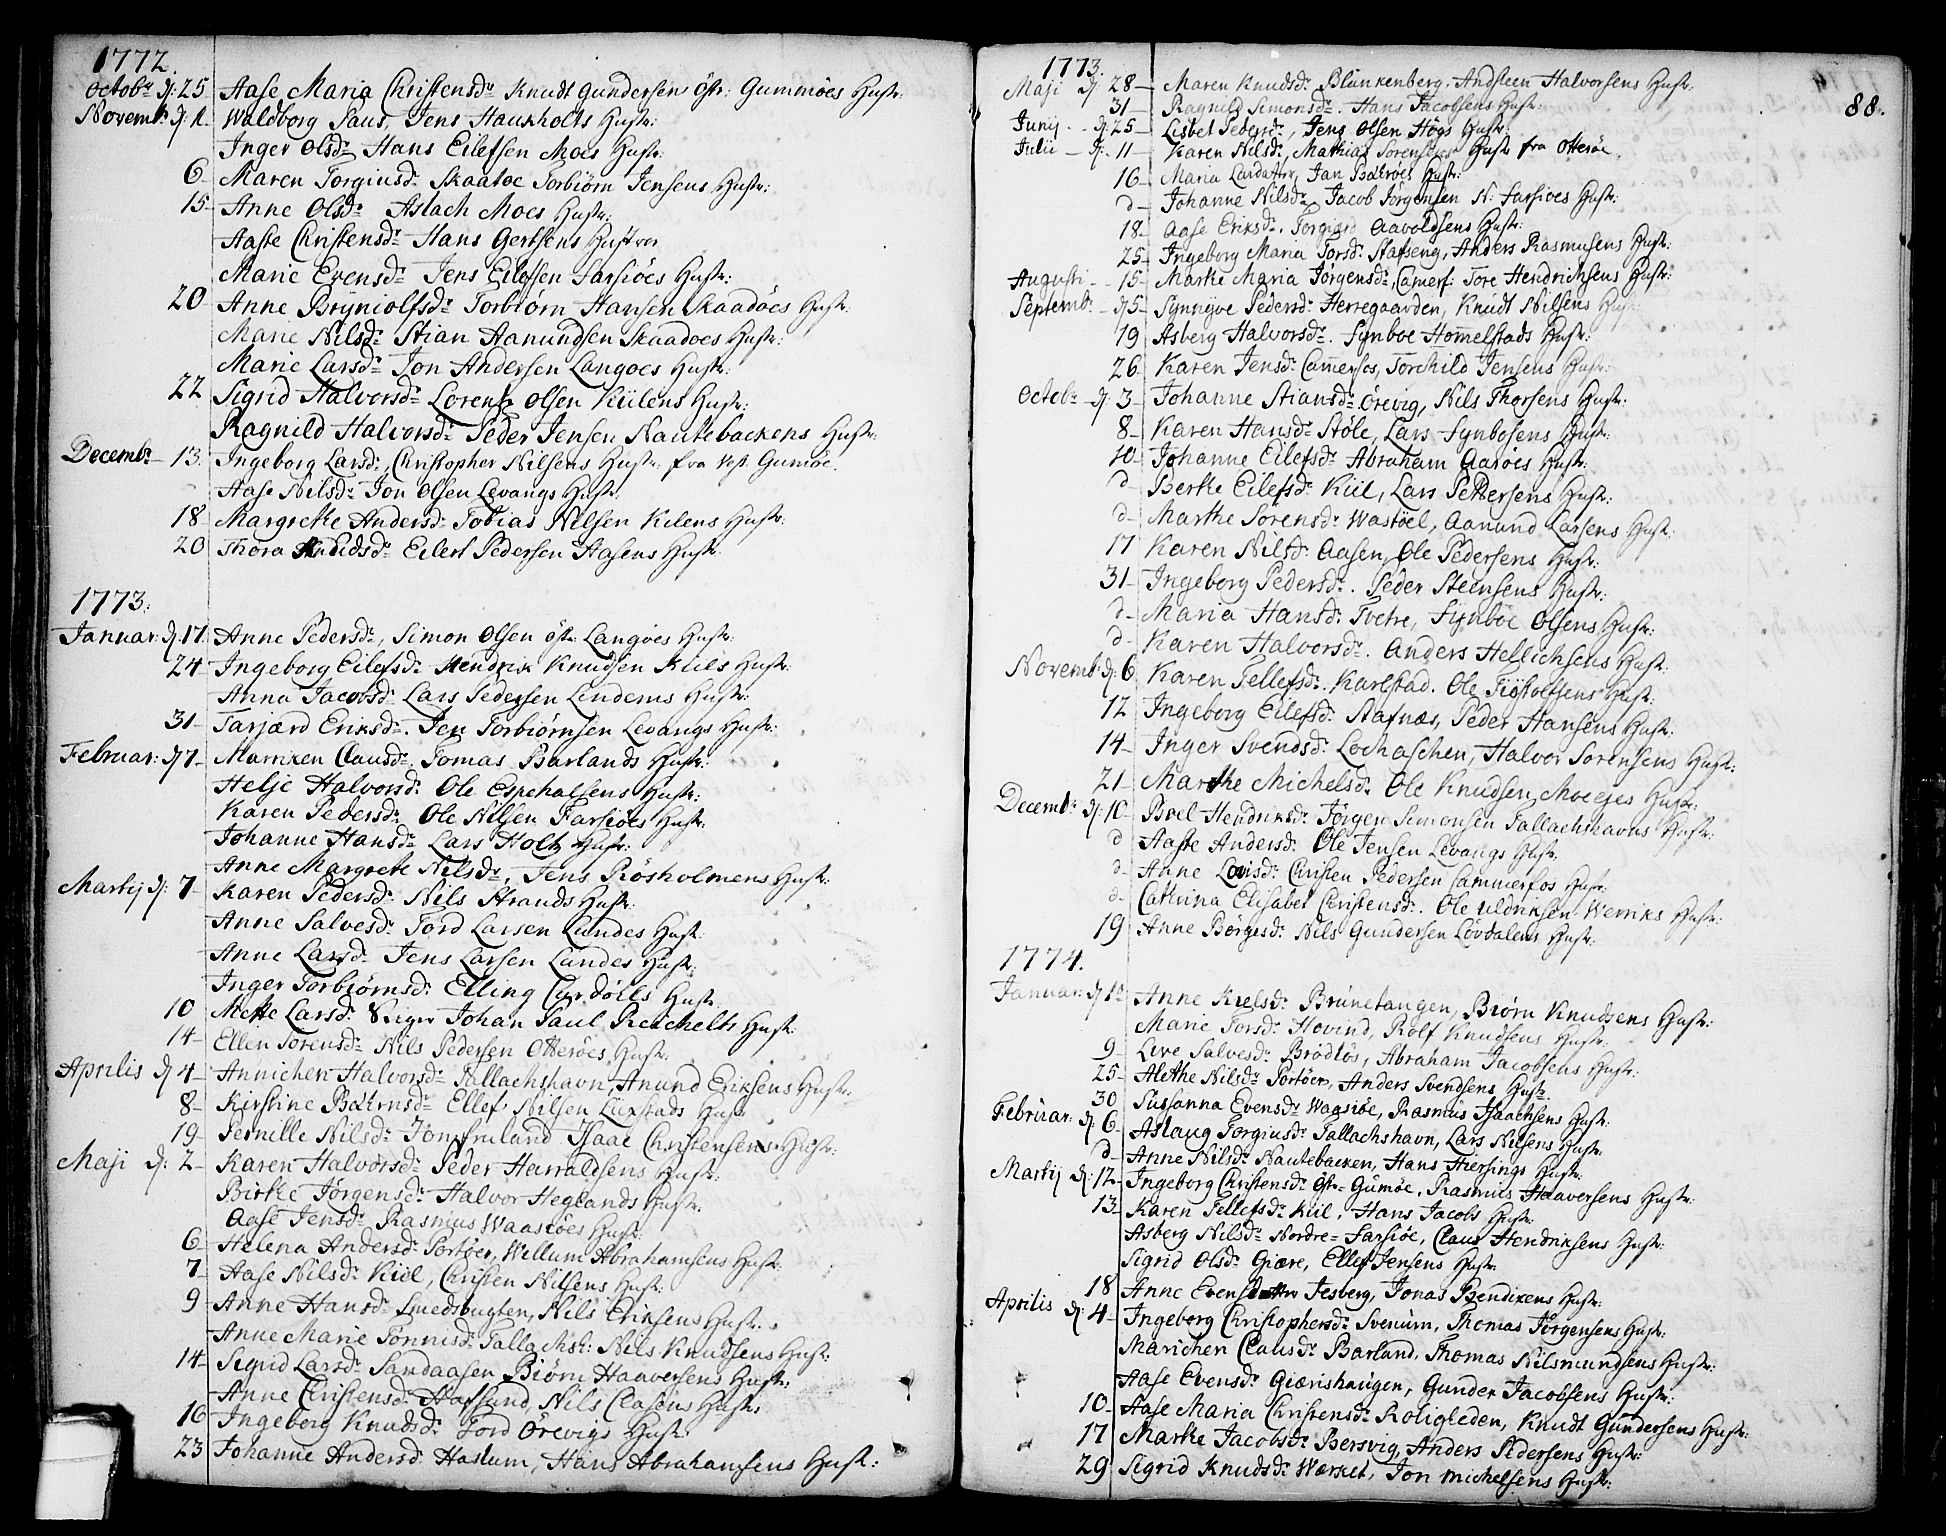 1772.
Octobr d: 25 Aase Maria Christensdr Knudt Gundersens östr: Gummöes Hustr:
Novemb: d: 1. Waldborg Saus, Jens Haukholts Hustr:
Inger Olsdr Hans Eilefsen Moes Hustr:
6 Maren Torgiusdr Skaatöe Torbiörn Jensens Hustr:
15 Anne Olsdr Aslach Moes Hustr:
Aaste Christensdr Hans Gertsens Hustr
Marie Evensdr Jens Eilefsen Farsiöes Hustr:
20 Anne Bryniolfsdr Torbiörn Hansen Skaadöes Hustr:
Marie Nilsdr Stian Aanundsen Skaadoes Hustr:
Marie Larsdr Jon Andersen Langoes Hustr:
22 Sigrid Halvorsdr Lorentz Olsen Kiilens Hustr:
Ragnild Halvorsdr Peder Jensen Nautebackens Hustr:
Decembr 13. Ingeborg Larsdr, Christopher Nilsens Hustr: fra Gumöe.
Aase Nilsdr Jon Olsen Levangs Hustr:
18 Margrethe Andersdr Tobias Nilsen Kilens Hustr:
20 Thora Knudsdr Eilert Pedersen Aasens Hustr:
1773:
Januar: d: 17. Anne Pedersdr, Simon Olsen östr Langöes Hustr:
24 Ingeborg Eilefsdr Hendrik Knudsen Kiils Hustr:
Anna Jacobsdr Lars Pedersen Lindems Hustr:
31 Tarjærd Eriksdr. Jens Torbiörnsen Levangs Hustr:
Februar: d 7 Marriken Clausdr. Tomas Barlands Hustr:
Helje Halvorsdr Ole Espehalsens Hustr:
Karen Pedersdr Ole Nilsen Farsiöes Hustr:
Johanne Hansdr Lars Holts Hustr:
Anne Margrete Nilsdr, Jens Rösholmens Hustr:
Martij d: 7 Karen Pedersdr Nils Strands Hustr:
Anne Salvesdr Tord Larsen Lundes Hustr:
Anne Larsdr Jens Larsen Landes Hustr:
Inger Torbiörnsdr Elling Hustr:
10 Mette Larsdr Johan Paul Reichelts Hustr:
14 Ellen Sorensdr Nils Pedersen Otteröes Hustr:
Aprilis d 4 Annichen Halvorsdr Tallachshavn Anund Eriksens Hustr:
8 Kirstine Ellef Nilsen Lixstads Hustr
19 Pernille Nilsdr Jomfruland Isaac Christensens Hustr:
Maji d: 2 Karen Halvorsdr Peder Harraldsens Hustr:
Birte Jørgensdr Halvor Heglands Hustr:
Aase Jensdr Rasmus Waasiöes Hustr:
6 Helena Andersdr Portöer, Willum Abrahamsens Hustr:
7 Aase Nilsdr Kiil, Christen Nilsens Hustr:
9 Anne Hansdr Smedsbugten, Nils Eriksens Hustr:
Anne Marie Tönnisdr Tallachsh: Nils Knudsens Hustr:
14 Sigrid Larsdr Sandaasen Biörn Haaversens Hustr:
Anne Christensdr Hafsund, Nils Clasens Hustr:
16 Ingeborg Knudsdr Tord Örevigs Hustr:
23 Johanne Andersdr Haslum, Hans Abrahamsens Hustr:
88.
1773.
Maji d: 28 Maren Knudsdr Blankenberg, Andsteen Halvorsens Hustr:
31 Ragnild Simonsdr. Hans Jacobsens Hustr:
Junij d: 25 Lisbet Pedersdr, Jens Olsen Högs Hustr:
Julii d: 11 Karen Nilsdr, Mathias Sorensens Hustr fra Otteröe.
16 Maria Hustr:
d Johanne Nilsdr Jacob Jörgensen N: Farsioes Hustr:
18 Aase Eriksdr. Torgiard Aavoldsens Hustr:
25 Ingeborg Maria Torsdr Stafseng, Anders Rasmusens Hustr:
Augusti 15 Marte Maria Jörgensdr, Camerf: Tore Hendrichsens Hustr:
Septemb. d 5 Synnyve Pedersdr Herregaarden, Knudt Nilsens Hustr:
19 Asberg Halvorsdr. Synboe Hommelstads Hustr:
26 Karen Jensdr Camerfos, Torchild Jensens Hustr:
Octobr d: 3 Johanne Stiansdr Örevig, Nils Thorsens Hustr:
8 Karen Hansdr Stöle, Lars Synbosens Hustr:
10 Johanne Eilefsdr Abraham Aaröes Hustr:
d Berte Eilefsdr Kiil, Lars Pettersens Hustr:
d Marthe Sörensdr Wastöel, Aanund Larsens Hustr:
17 Karen Nilsdr Aasen, Ole Pedersens Hustr:
31 Ingeborg Pedersdr. Peder Steensens Hustr:
d Maria Hansdr Tvetre, Synböe Olsens Hustr:
d Karen Halvorsdr. Anders Hellichsens Hustr:
Novemb d: 6. Karen Tellefsdr. Karlstad. Ole Tiöstolfsens Hustr:
12 Ingeborg Eilefsdr Stafnæs, Peder Hansens Hustr:
14 Inger Svendsdr Halvor Sorensens Hustr:
21 Marthe Michelsdr Ole Knudsen Hustr:
Decembr d: 10 Boel Hendriksdr Jörgen Simonsen Tallachshavns Hustr:
d Aaste Andersdr Ole Jensen Levangs Hustr.
d Anne Christen Pedersen Cammerfos Hustr:
d Cathrina Elisabet Christensdr. Ole Uldriksen Werriks Hustr:
19 Anne Börgesdr Nils Gundersen Lövdalens Hustr:
1774.
Januar: d 1 Anne Kielsdr Brunetangen, Biörn Knudsens Hustr:
Marie Torsdr Hovind, Rolf Knudsens Hustr:
9 Live Salvesdr Brödlös, Abraham Jacobsens Hustr:
25 Alethe Nilsdr Portöer, Anders Svendsens Hustr.
30 Susanna Evensdr Waasiöe, Rasmus Isaachsens Hustr:
Februar: d: 6 Aslaug Torgiusdr Tallachshavn, Lars Nilsens Hustr:
d Anne Nilsdr Nautebacken, Hans Hiersings Hustr:
Martij d: 12 Ingeborg Christensdr östr Gumöe, Rasmus Haaversens Hustr:
13 Karen Tellefsdr Kiil, Hans Jacobs Hustr:
Asberg Nilsdr Nordre Farsiöe, Claus Hendriksens Hustr:
Sigrid Olsdr Giære, Ellef Jensens Hustr:
18 Anne Jesberg, Jonas Bendixens Hustr:
Aprilis d: 4 Ingeborg Christophersdr Svenum, Thomas Jörgensens Hustr:
Marichen Clausdr Barland, Thomas Nilsmundsens Hustr:
Aase Evensdr Giærishaugen, Gunder Jacobsens Hustr:
10 Aase Maria Christensdr Roligleden, Knudt Gundersens Hustr:
17 Marte Jacobsdr Bersvig, Anders Pedersens Hustr:
29 Sigrid Knudsdr Jon Michelsens Hustr: